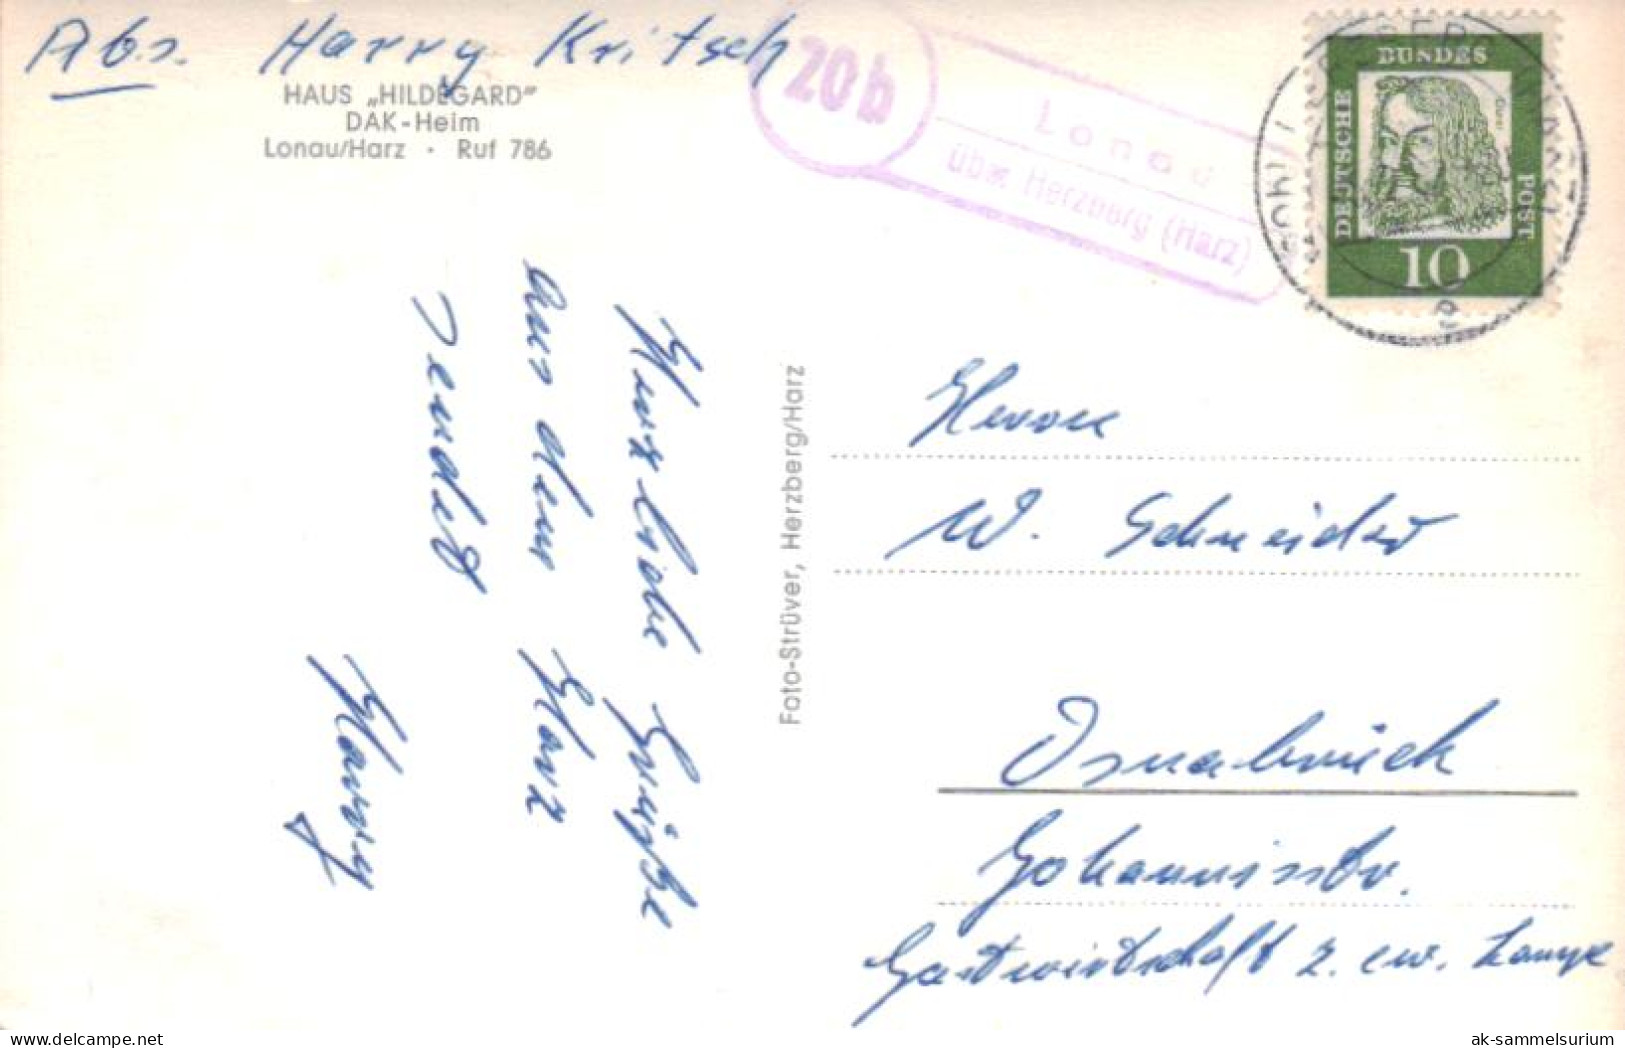 Abs. Harry Kritsch
HAUS „HILDEGARD"
DAK-Heim
Lonau/Harz · Ruf 786
20b
Lonau
über Herzberg (Harz)
DEUTSCHE
BUNDES
POST
10
Herzliche Grüße
aus dem Harz
sendet
Harry
Foto-Strüver, Herzberg/Harz
Herrn
W. Schneider
Osnabrück
Johannisstr.
Gastwirtschaft z. ew. Lampe
ak-sammelsurium